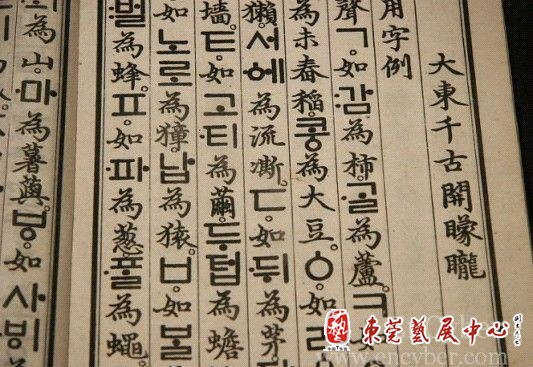 大東千古開矇矓
用字例
聲ㄱ如감為柿ᄀᆞᆯ為蘆ㅋ如
為未舂稻콩為大豆ㆁ如러
獺서에為流凘ㄷ如뒤為茅
墻ㅌ如고티為繭두텁為蟾
如노로為獐납為猿ㅂ如ᄇᆞᆯ
벌為蜂ㅍ如파為葱ᄑᆞᆯ為蠅
為山마為薯藇ㅸ如사ᄫᅵ
东莞藝展中心
www.encyber.com